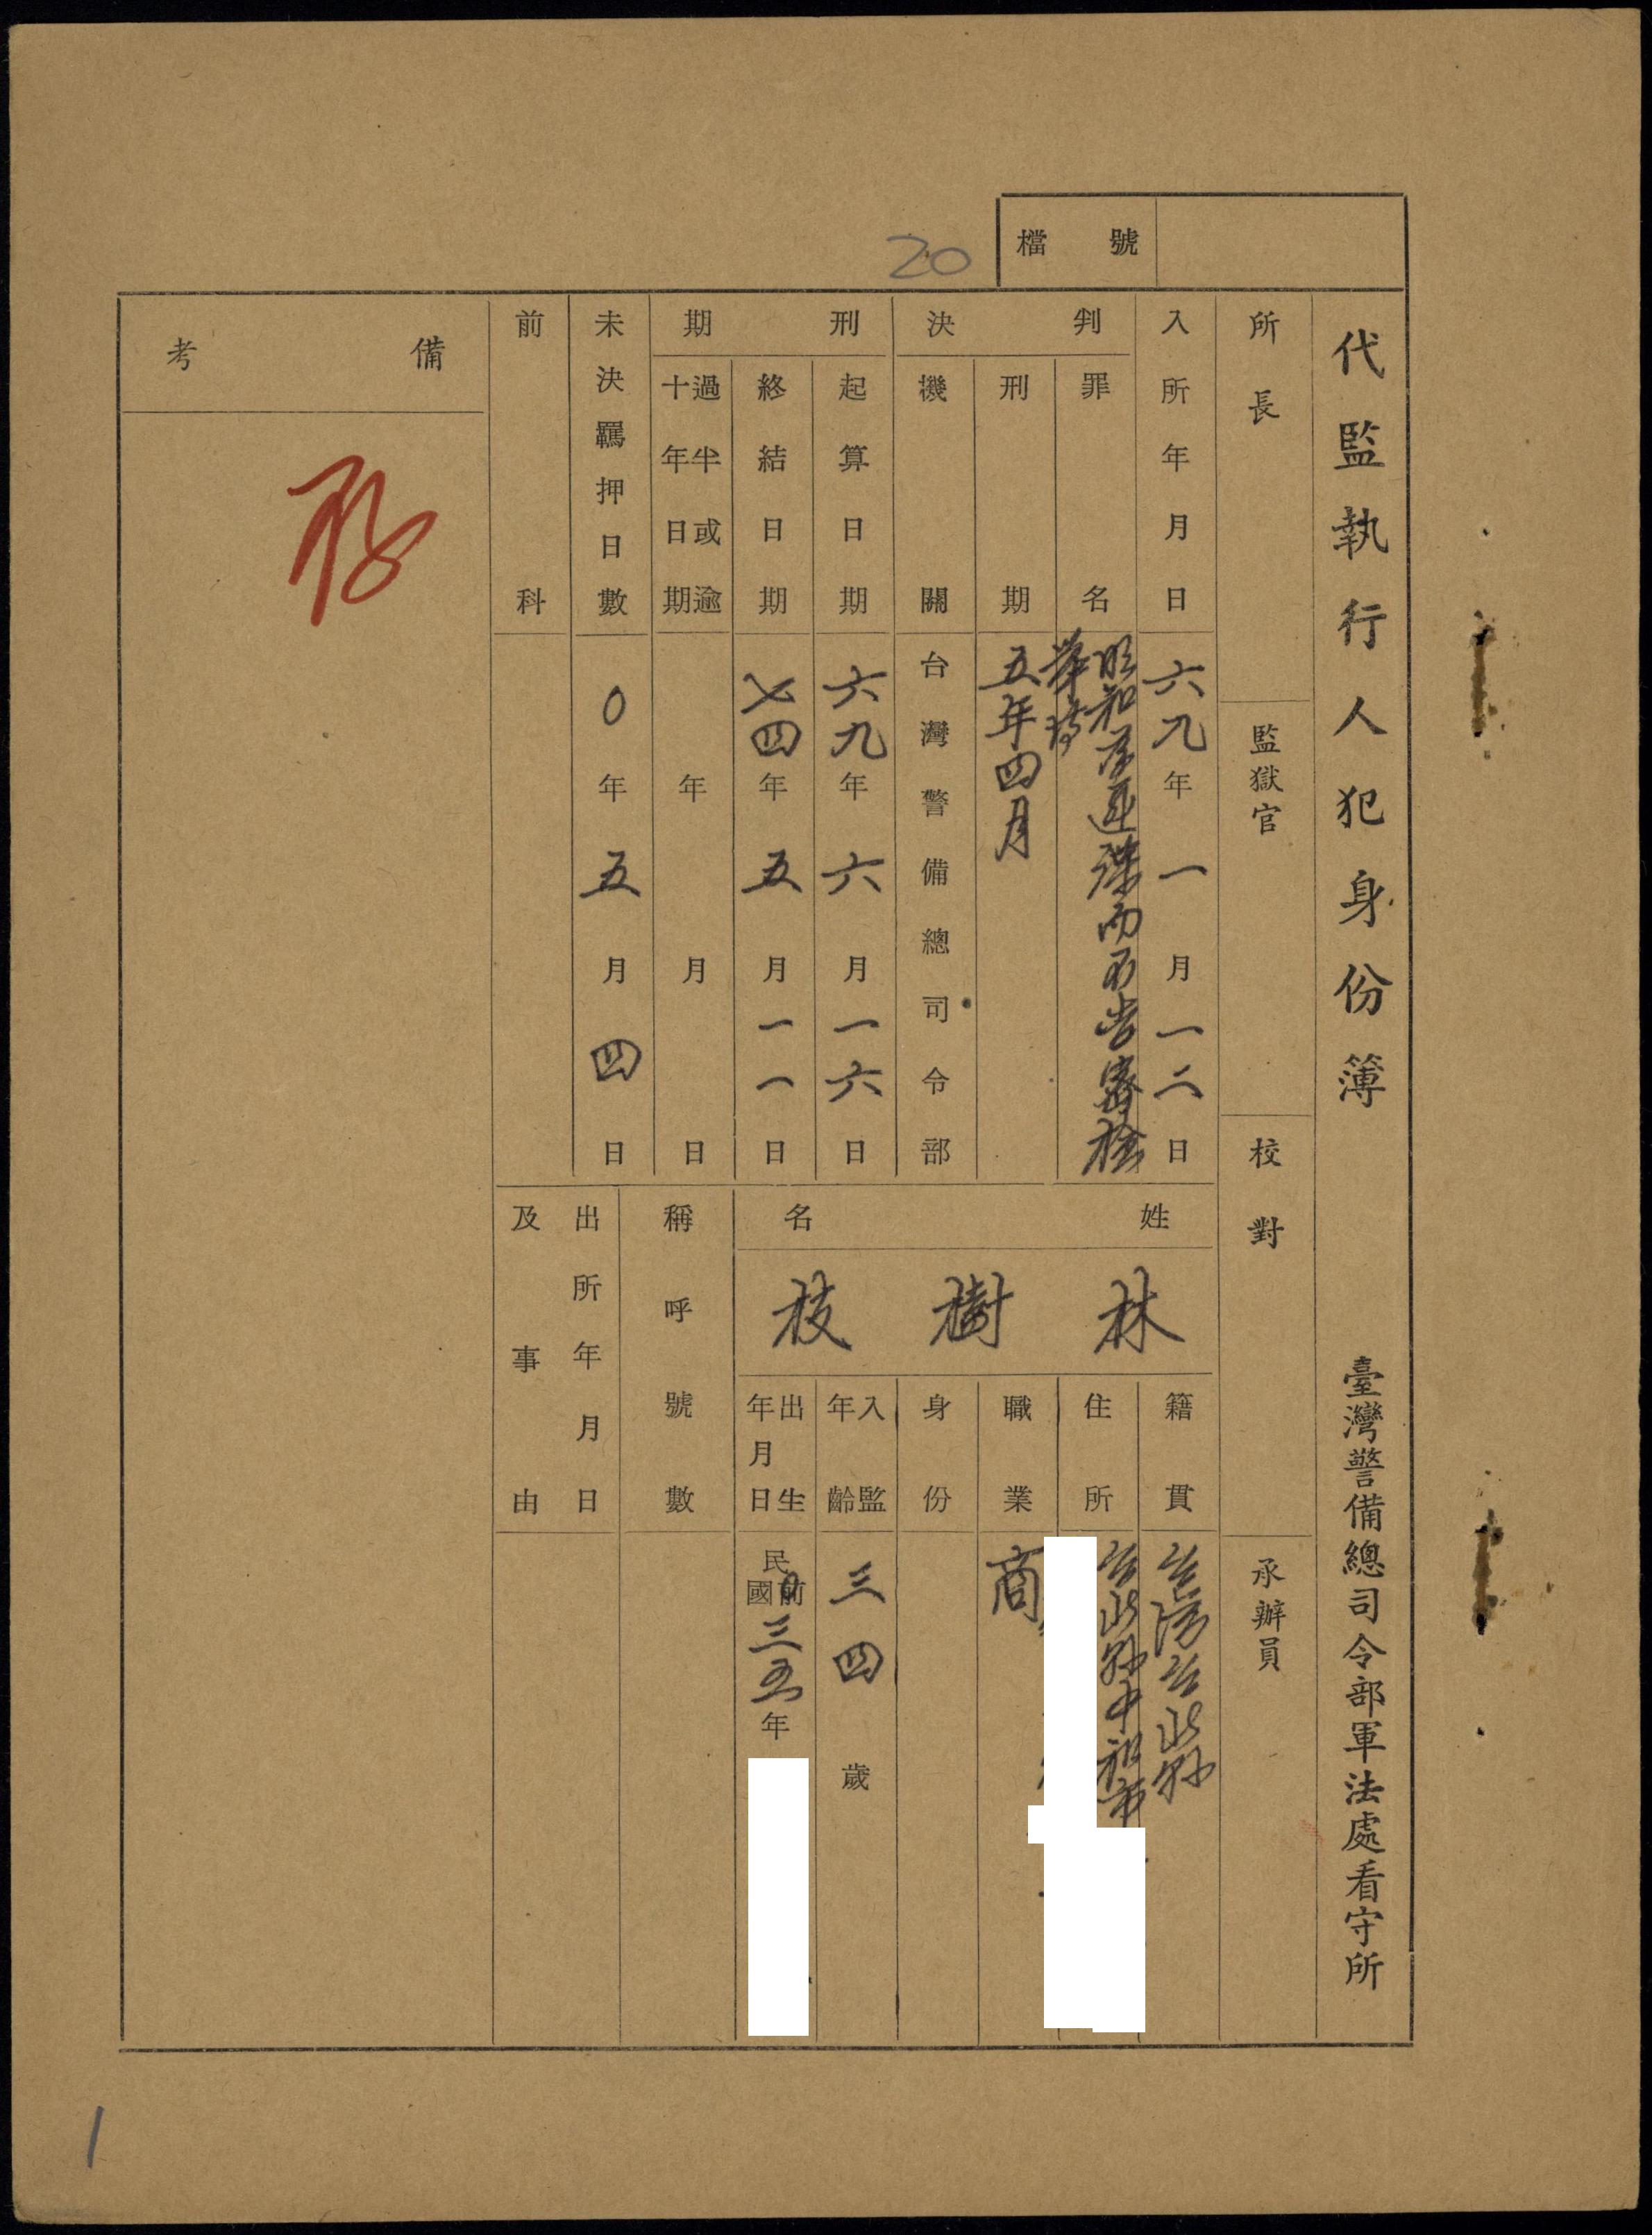 檔號
20
代監執行人犯身份簿 臺灣警備總司令部軍法處看守所
所長
監獄官
校對
承辦員
入所年月日 六九年一月一二日
判決
罪名 明知為匪諜而不告密檢舉
刑期 五年四月
機關 台灣警備總司令部
刑期
起算日期 六九年六月一六日
終結日期 七四年五月一一日
過半或逾十年日期 年 月 日
未決羈押日數 0年五月四日
前科
姓名
林樹枝
籍貫 台灣台北縣
住所 台北縣中和市
職業 商
身份
入監年齡 三四歲
出生年月日 民國前三五年
稱呼號數
出所年月日及事由
備考
1